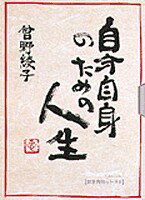 自分自身
のための
人生
曾野綾子